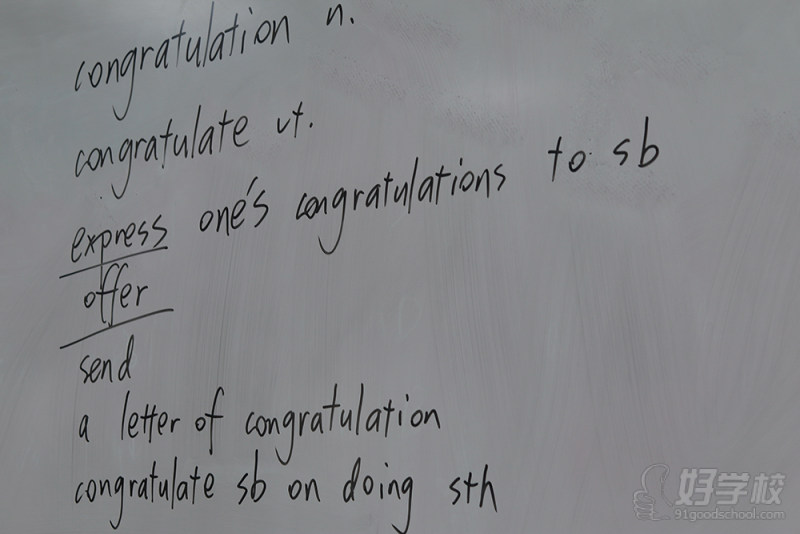 congratulation n.
congratulate vt.
express one's congratulations to sb
offer
send
a letter of congratulation
congratulate sb on doing sth
好学校
91goodschool.com